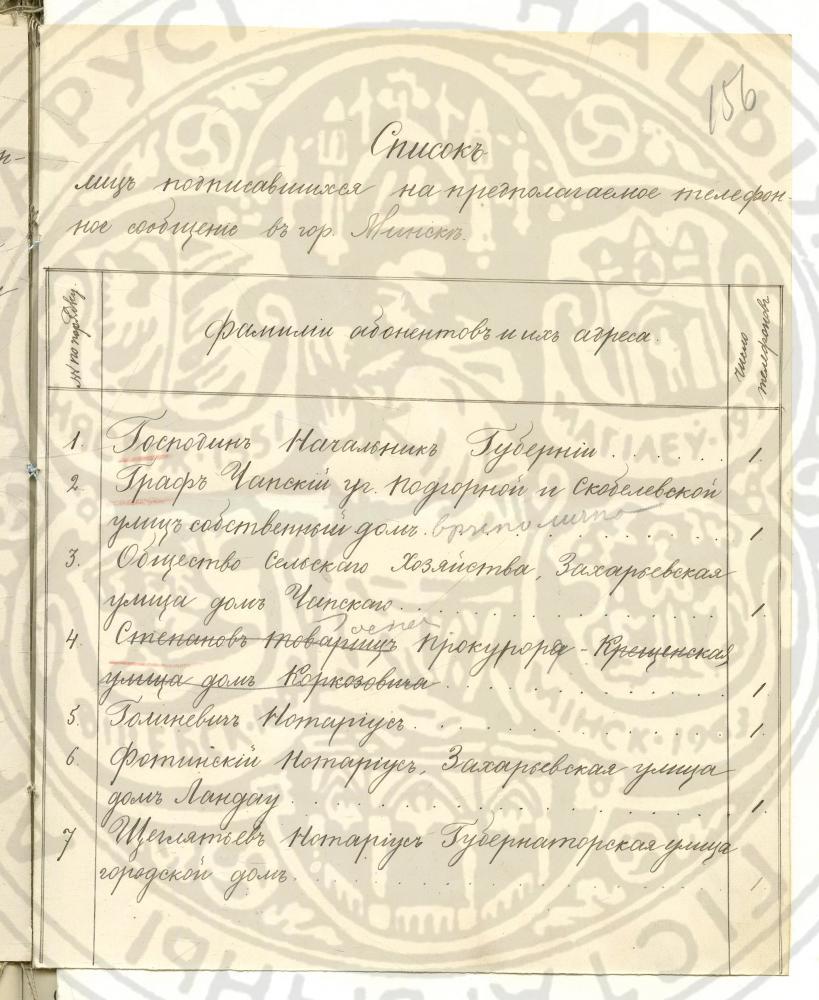 156
Списокъ
лицъ подписавшихся на предполагаемое телефон-
ное сообщеніе въ гор. Минскѣ.
№№ по порядку.
Фамиліи абонентовъ и ихъ адреса.
Число телефоновъ
1. Господинъ Начальникъ Губерніи . . . . . . . 1.
2. Графъ Чапскій уг. Подгорной и Скобелевской
улицъ собственный домъ. . . . . . . . . 1
3. Общество Сельскаго Хозяйства, Захарьевская
улица домъ Чапскаго. . . . . . . . . . 1.
4. Степановъ товарищъ Прокурора - Крещенская
улица домъ Коркозовича . . . . . . . . . 1.
5. Голиневичъ Нотаріусъ. . . . . . . . . . 1.
6. Фотинскій Нотаріусъ, Захарьевская улица
домъ Ландау . . . . . . . . . . . 1.
7 Щеглятьевъ Нотаріусъ Губернаторская улица
городской домъ. . . . . . . . . . . 1